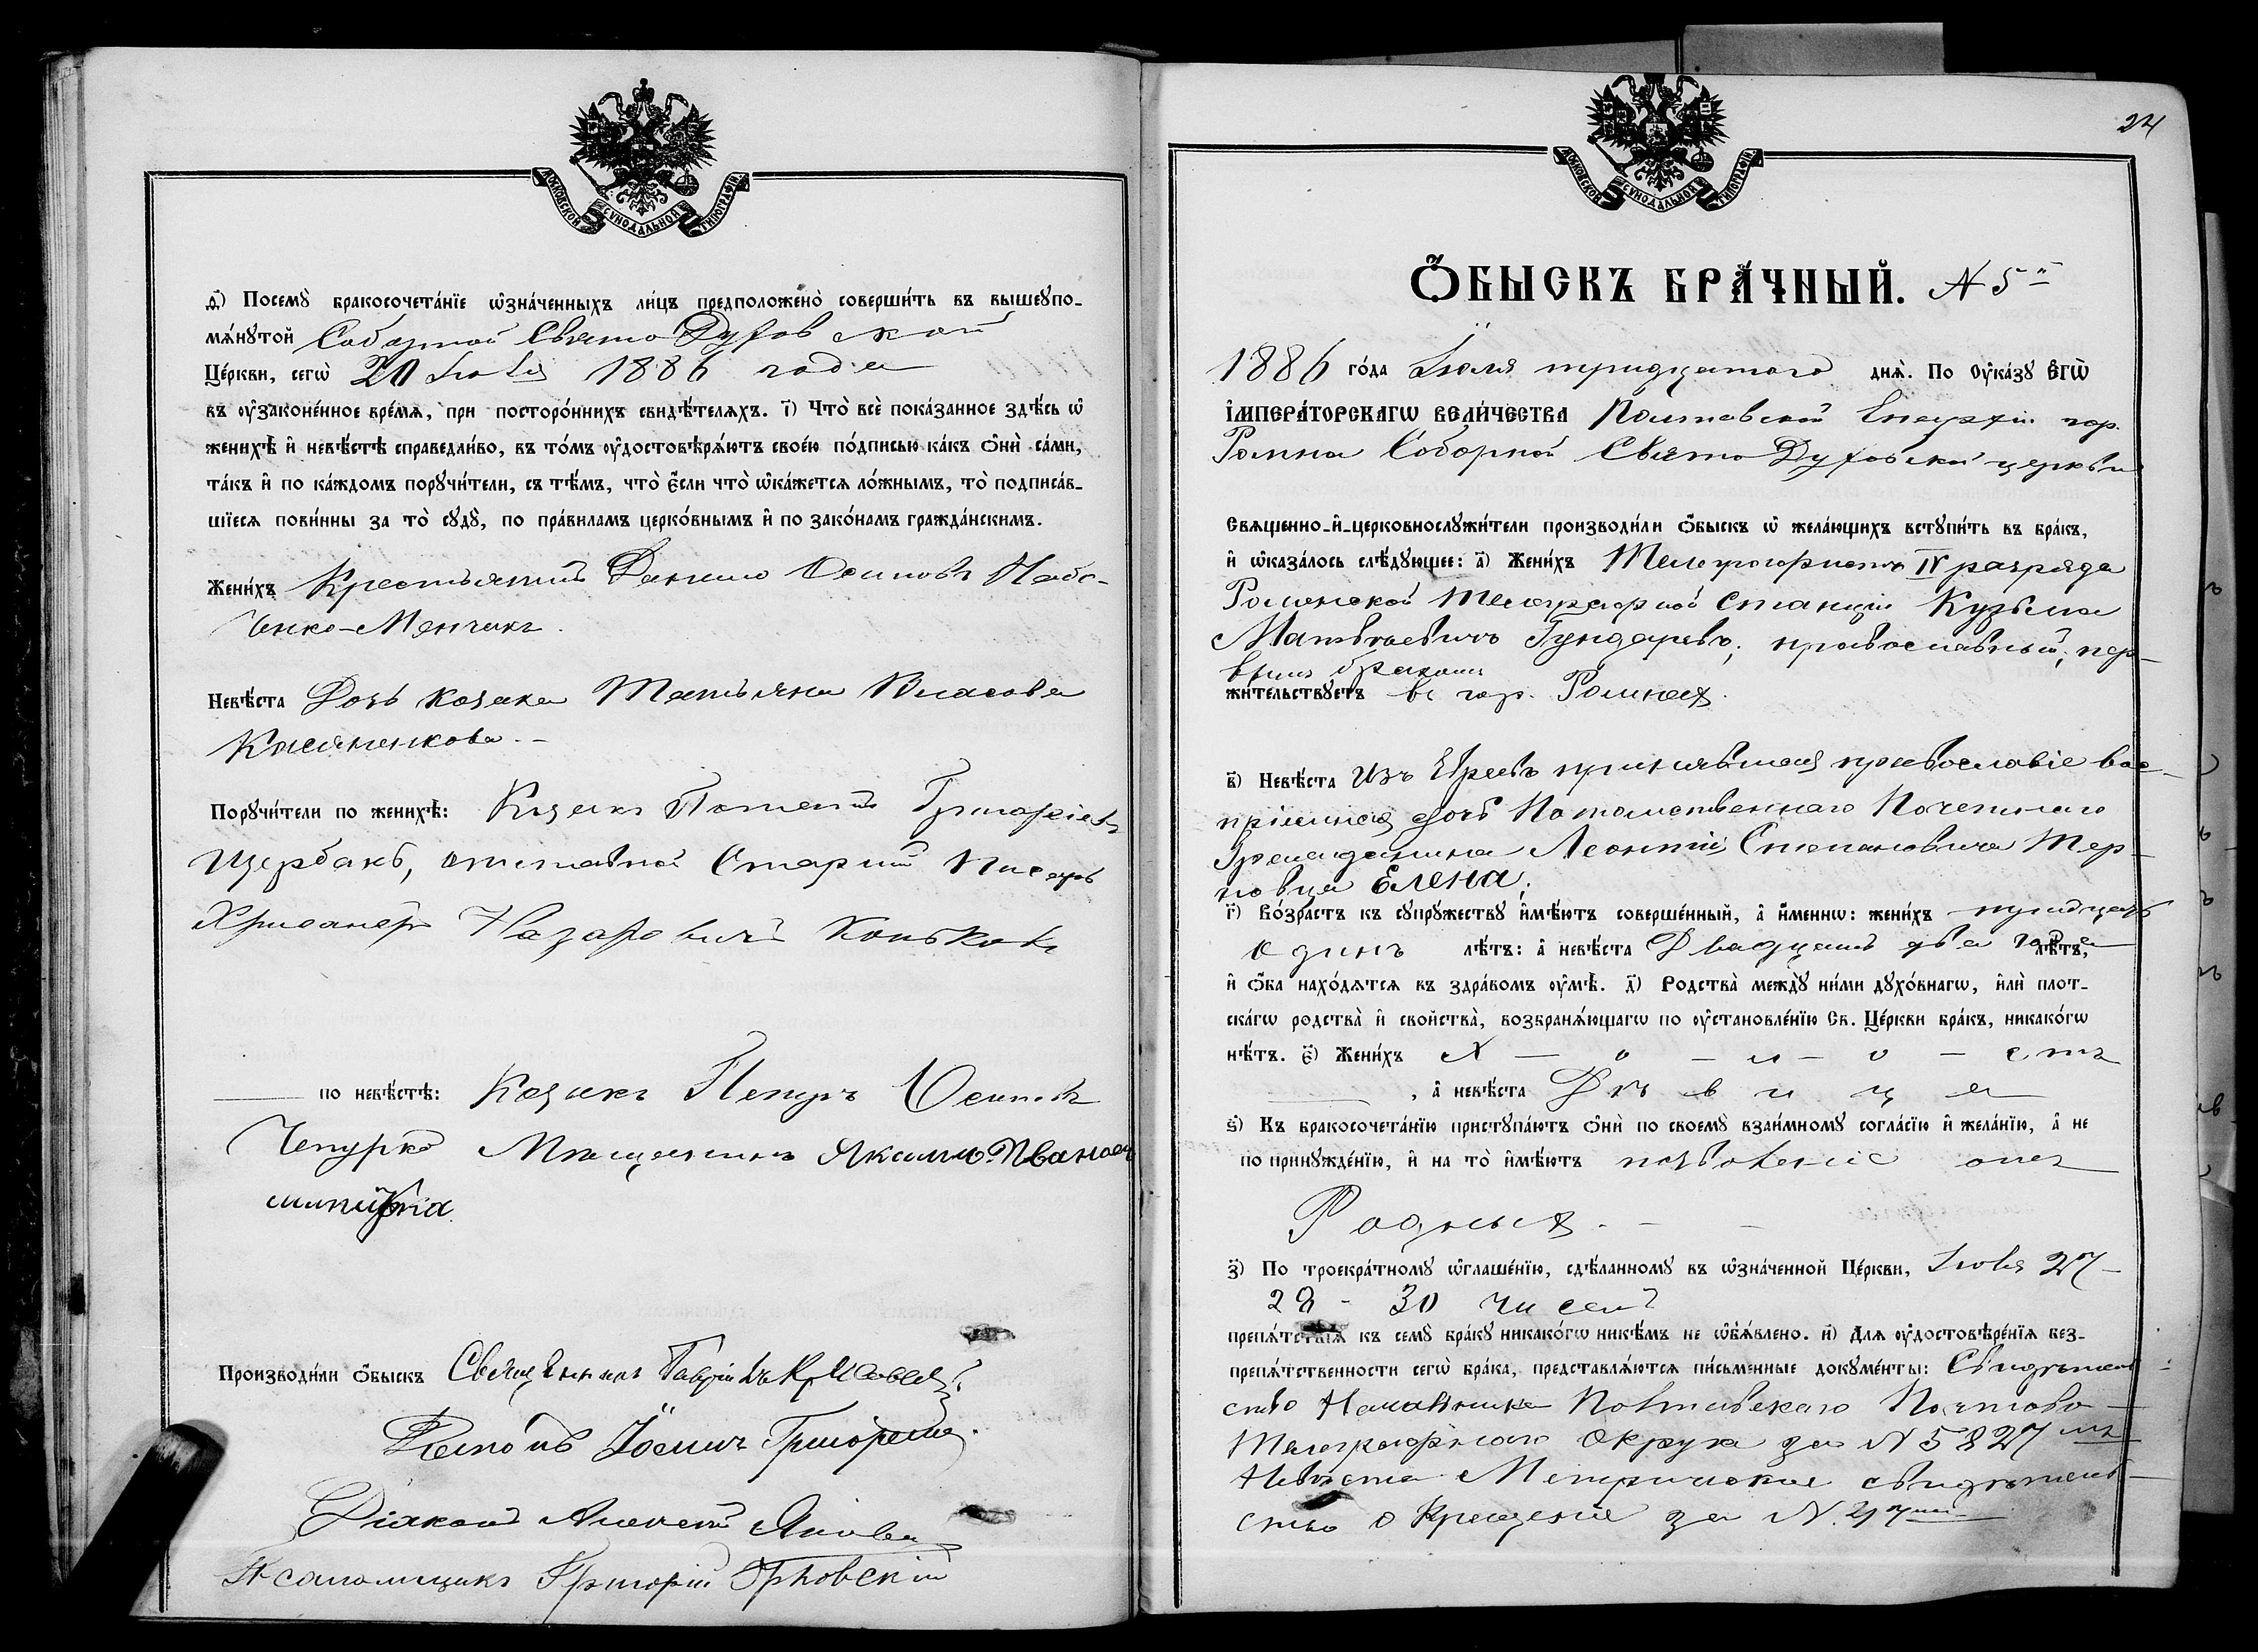 МОСКОВСКОЙ СѴНОДАЛЬНОЙ ТИПОГРАФІИ.
ѳ҃) Посемꙋ̀ бракосочета́нїе ѡ҆зна́ченныхъ ли́цъ предположено̀ соверши́ть въ вышеꙋпо-
мѧ́нꙋтой Соборной Свято Духовской
Це́ркви, сегѡ̀ 20 Іюля 1886 года
въ ᲂу҆законе́нное вре́мѧ, при посторо́ннихъ свидѣ́телѧхъ. і҃) Что̀ всѐ пока́занное здѣ́сь ѡ҆
женихѣ̀ и҆ невѣ́стѣ справедли́во, въ то́мъ ᲂу҆достовѣрѧ́ютъ свое́ю по́дписью ка́къ ѻ҆нѝ са́ми,
та́къ и҆ по ка́ждомъ порꙋчи́тели, съ тѣ́мъ, что̀ є҆́сли что̀ ѡ҆ка́жетсѧ ло́жнымъ, то̀ подписа́в-
шїесѧ пови́нны за то̀ сꙋдꙋ̀, по пра́виламъ церко́внымъ и҆ по зако́намъ гражда́нскимъ.
Жени́хъ Крестьянинъ Данило Осиповъ
Невѣ́ста Дочь козака Татьяна Власова
Касяненкова. -
Порꙋчи́тели по женихѣ̀: Козакъ Григоріевъ
Щербакъ, отставной Старшій Писарь
Хрисанфъ Назаровичъ Коньковъ
по невѣ́стѣ: Козакъ Петръ Осиповъ
Чепурко Мѣщанинъ Якимъ Иванов
Производи́ли ѻ҆́быскъ Священникъ Гавріилъ
Діаконъ Алексій
Псаломщикъ Григорій
24
МОСКОВСКОЙ СѴНОДАЛЬНОЙ ТИПОГРАФІИ.
Ѻ҆́БЫСКЪ БРА́ЧНЫЙ. № 5й
1886 го́да Іюля тридцатаго днѧ̀. По ᲂу҆ка́зꙋ Є҆гѡ̀
І҆мпера́торскагѡ вели́чества Полтавской Епархіи гор.
Ромна Соборной Свято Духовской церкви
Свѧщенно-и҆-церковнослꙋжи́тели производи́ли ѻ҆́быскъ ѡ҆ жела́ющихъ встꙋпи́ть въ бра́къ,
и҆ ѡ҆каза́лось слѣ́дꙋющее: а҃) Жени́хъ Телеграфистъ IV разряда
Роменской Телеграфной Станціи Кузьма
Матвѣевичъ Гундаревъ, православный, пер-
вымъ бракомъ
жи́тельствꙋетъ въ гор. Ромнахъ.
в҃) Невѣ́ста Изъ Евреевъ принявшая православіе вос-
пріемная дочь Потомственнаго Почетнаго
Гражданина Леонтія Степановича Тер-
повца Елена,
г҃) Во́зрастъ къ сꙋпрꙋжествꙋ и҆мѣ́ютъ соверше́нный, а҆ и҆́меннѡ: жени́хъ тридцать
одинъ лѣ́тъ: а҆ невѣ́ста Двадцать два года лѣ́тъ,
и҆ ѻ҆́ба нахо́дѧтсѧ въ здра́вомъ ᲂу҆мѣ̀. д҃) Родства̀ междꙋ̀ ни́ми дꙋхо́внагѡ, и҆лѝ плот-
ска́гѡ родства̀ и҆ свойства̀, возбранѧ́ющагѡ по ᲂу҆становле́нїю Св. Це́ркви бра́къ, никако́гѡ
нѣ́тъ. є҃) Жени́хъ Х — о — л — о — стъ
, а҆ невѣ́ста Дѣвица
ѕ҃) Къ бракосочета́нїю пристꙋпа́ютъ ѻ҆нѝ по своемꙋ̀ взаи́мномꙋ согла́сїю и҆ жела́нїю, а҆ не
по принꙋжде́нїю, и҆ на то̀ и҆мѣ́ютъ позволеніе отъ
Родныхъ. - -
з҃) По троекра́тномꙋ ѡ҆глаше́нїю, сдѣ́ланномꙋ въ ѡ҆зна́ченной Це́ркви, Іюля 27 -
28 - 30 чиселъ
препѧ́тствїѧ къ семꙋ̀ бра́кꙋ никако́гѡ никѣ́мъ не ѡ҆б̾ѧ́влено. и҃) Длѧ ᲂу҆достовѣре́нїѧ без-
препѧ́тственности сегѡ̀ бра́ка, представлѧ́ютсѧ пи́сьменные докꙋме́нты: Свидѣтель-
ство Начальника Полтавскаго Почтово-
Телеграфнаго Округа за № 5827мъ
Невѣста Метрическое свидѣтель-
ство о Крещеніе за №